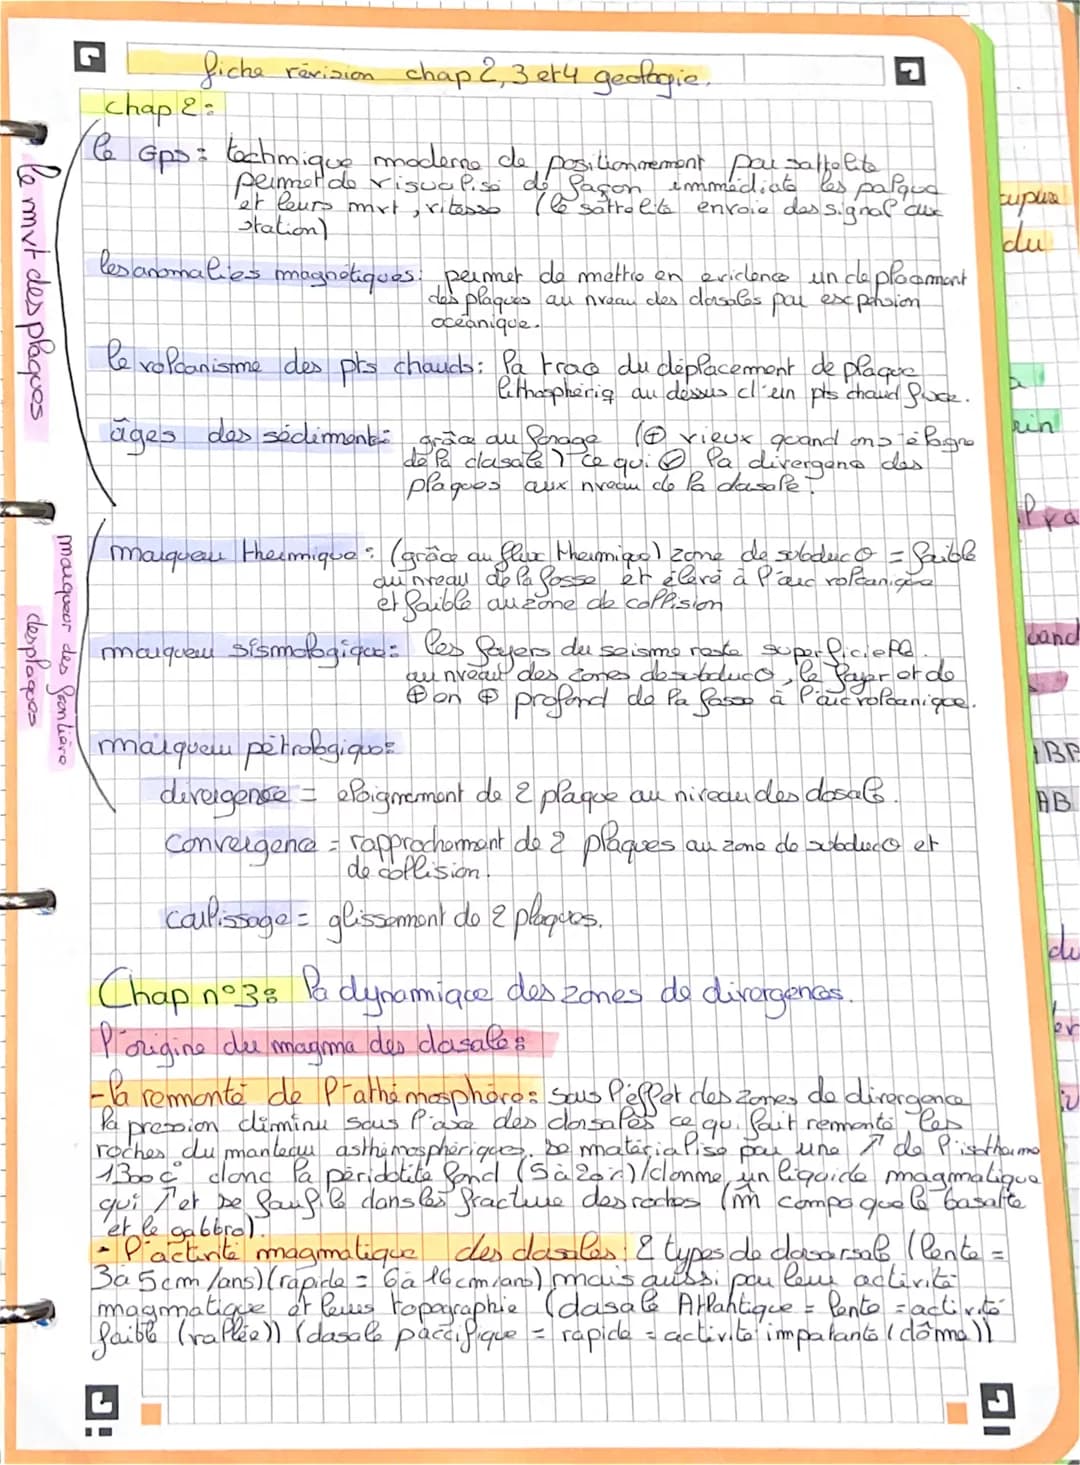 fiche révision chap 2, 3 et 4 geologie.
Chap 2 :
le mvt des plaques
le GPS : technique moderne de positionnement par sattelite
permet de visualisé de façon immédiate les palque
et leurs mvt, vitesse (le sattelite envoie des signal aux
station)
les anomalies magnétiques : permet de mettre en evidence un deplacement
des plaques au nveau des dorsales par exspension
océanique.
le volcanisme des pts chauds : la trace du déplacement de plaque
lithosphériq au dessus d'un pts chaud fixe.
âges des sédiments grâce au forage (⊕ vieux quand on s'éloigne
de la dorsale) ce qui la divergence des
plaques aux nveau de la dorsale.
marqueur des frontière
des plaques
marqueur thermique : (grâce au flux thermique) zone de subduc⁰ = faible
au nveau de la fosse et élevé à l'arc volcanique
et faible au zone de collision
marqueur sismologique : les foyers du seisme reste superficielle.
au nveau des zones de subduc⁰, le foyer et de
⊕ en ⊕ profond de la fosse à l'arc volcanique.
marqueur pétrologique :
divergence = eloignement de 2 plaque au niveau des dosale.
convergence = rapprochement de 2 plaques au zone de subduc⁰ et
de collision.
coulissage = glissement de 2 plaques.
Chap n°3 : la dynamique des zones de divergences.
l'origine du magma des dosales :
- la remonté de l'athénosphère : Sous l'effet des zones de divergence
la pression diminu sous l'axe des dorsales ce qui fait remonté les
roches du manteau asthénosphériques. Se matérialise par une ↗ de l'isotherme
1300 C° donc la péridotite fond (5 à 20%) / donne un liquide magmatique
qui ↑ et se faufile dans les fracture des roches (m̂ compo que le basalte
et le gabbro).
- l'activité magmatique des dosales : 2 types de dosarsale (lente =
3 à 5 cm /ans) (rapide = 6 à 16 cm/ans) mais aussi par leur activité
magmatique et leurs topographie (dosale Atlantique = lente = activité
faible (vallée)) (dosale paccifique = rapide = activité impotante (dôme))
cupure
du
rin
uand
ABP
AB
du